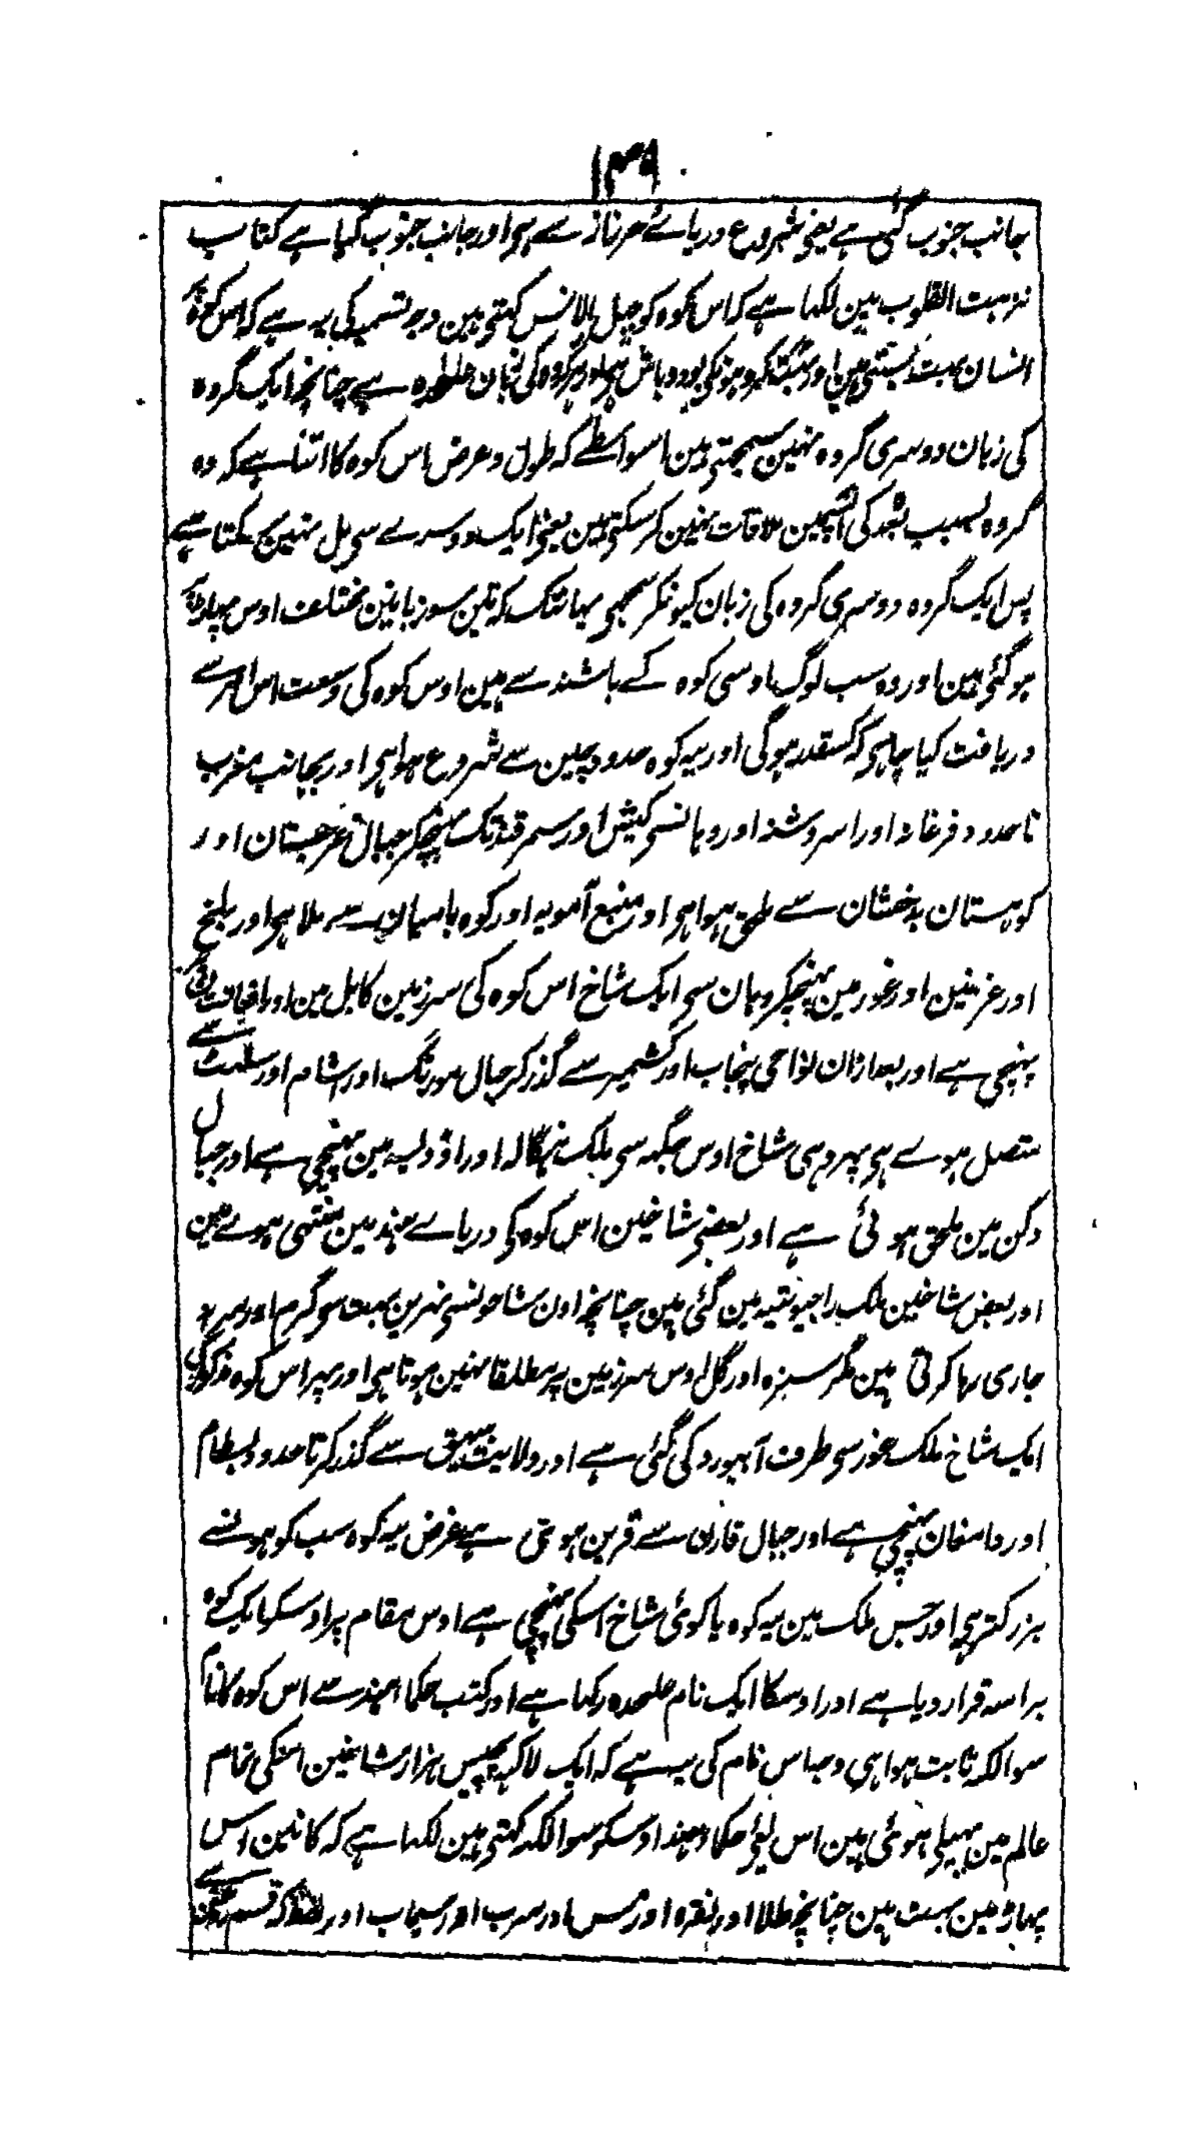 ۱۳۹
جانب جنوب گئی ہے یعنی شروع دریائے سے ہی اور جانب جنوب گیا ہے کتاب
نزہت القلوب مین لکہا ہے کہ اس کوہ کو کہتی ہین وجہ تسمیہ کی یہ ہے کہ اس کوہ پر
انسان بہت بستی ہین اور بود و باش ہی اور ہر گروہ کی زبان علحدہ ہے چنانچہ ایک گروہ
کی زبان دوسری گروہ نہین سمجہتی ہین اسواسطے کہ طول و عرض اس کوہ کا اتنا ہے کہ وہ
گروہ بسبب بُعد کی آپسمین ملاقات نہین کر سکتی ہین یعنی ایک دوسرے سی مل نہین سکتا ہے
پس ایک گروہ دوسری گروہ کی زبان کیونکر سمجہی یہانتک کہ تین سو زبانین مختلف اوس پہاڑ پر
ہو گئی ہین اور وہ سب لوگ اوسی کوہ کے باشندے ہین اوس کوہ کی وسعت اس امر سے
دریافت کیا چاہی کہ کسقدر ہوگی اور یہ کوہ حدود چین سے شروع ہوا ہی اور بجانب مغرب
تا حدود فرغانہ اور اسروشنہ اور وہانسی کیش اور سمرقند تک پہنچکر جبال غرجستان اور
کوہستان بدخشان سے ملحق ہوا ہی اور منبع آمویہ اور کوہ بامیان سے ملا ہی اور بلخ
اور غزنین اور غور مین پہنچکر وہان سی ایک شاخ اس کوہ کی سرزمین کابل مین اور
پہنچی ہے اور بعد ازان نواحی پنجاب اور کشمیر سے گذر کر جبال مورنگ اور اشام اور سلہٹ سے
متصل ہوے ہی پہر وہی شاخ اوس جگہہ سی ملک بنگالہ اور اوڈیسہ مین پہنچی ہے اور جبال
دکن مین ملحق ہوئی ہے اور بعضی شاخین اس کوہ کی دریاے ہند مین منتہی ہوے ہین
اور بعض شاخین ملک راجپوتیہ مین گئی ہین چنانچہ اون شاخونسی نہرین بہت سی گرم اور سرد
جاری رہا کرتی ہین مگر سبزہ اور گل اوس سرزمین پر مطلقا نہین ہوتا ہی اور پہر اس کوہ مذکور کی
ایک شاخ ملک غور سی طرف ابیورد کی گئی ہے اور ولایت بیہق سے گذر کر تا حدود بسطام
اور دامغان پہنچی ہے اور جبال قارن سے قرین ہوتی ہے غرض یہ کوہ سب کوہونسے
بزرکتر ہی اور جس ملک مین یہ کوہ یا کوئی شاخ اسکی پہنچی ہے اوس مقام پر اوسکو ایک کوہ
براسہ قرار دیا ہے اور اوسکا ایک نام علحدہ رکہا ہے اور کتب حکماء ہند سے اس کوہ کا نام
سوالکہ ثابت ہوا ہی وجہ اس نام کی یہہ ہے کہ ایک لاکہہ پچیس ہزار شاخین اسکی تمام
عالم مین پہیلی ہوئی ہین اس لیئے حکماء ہند اوسکو سوالکہ کہتی ہین لکہا ہے کہ کانین اس
پہاڑ مین بہت ہین چنانچہ طلا اور نقرہ اور مس اور سرب اور سیماب اور